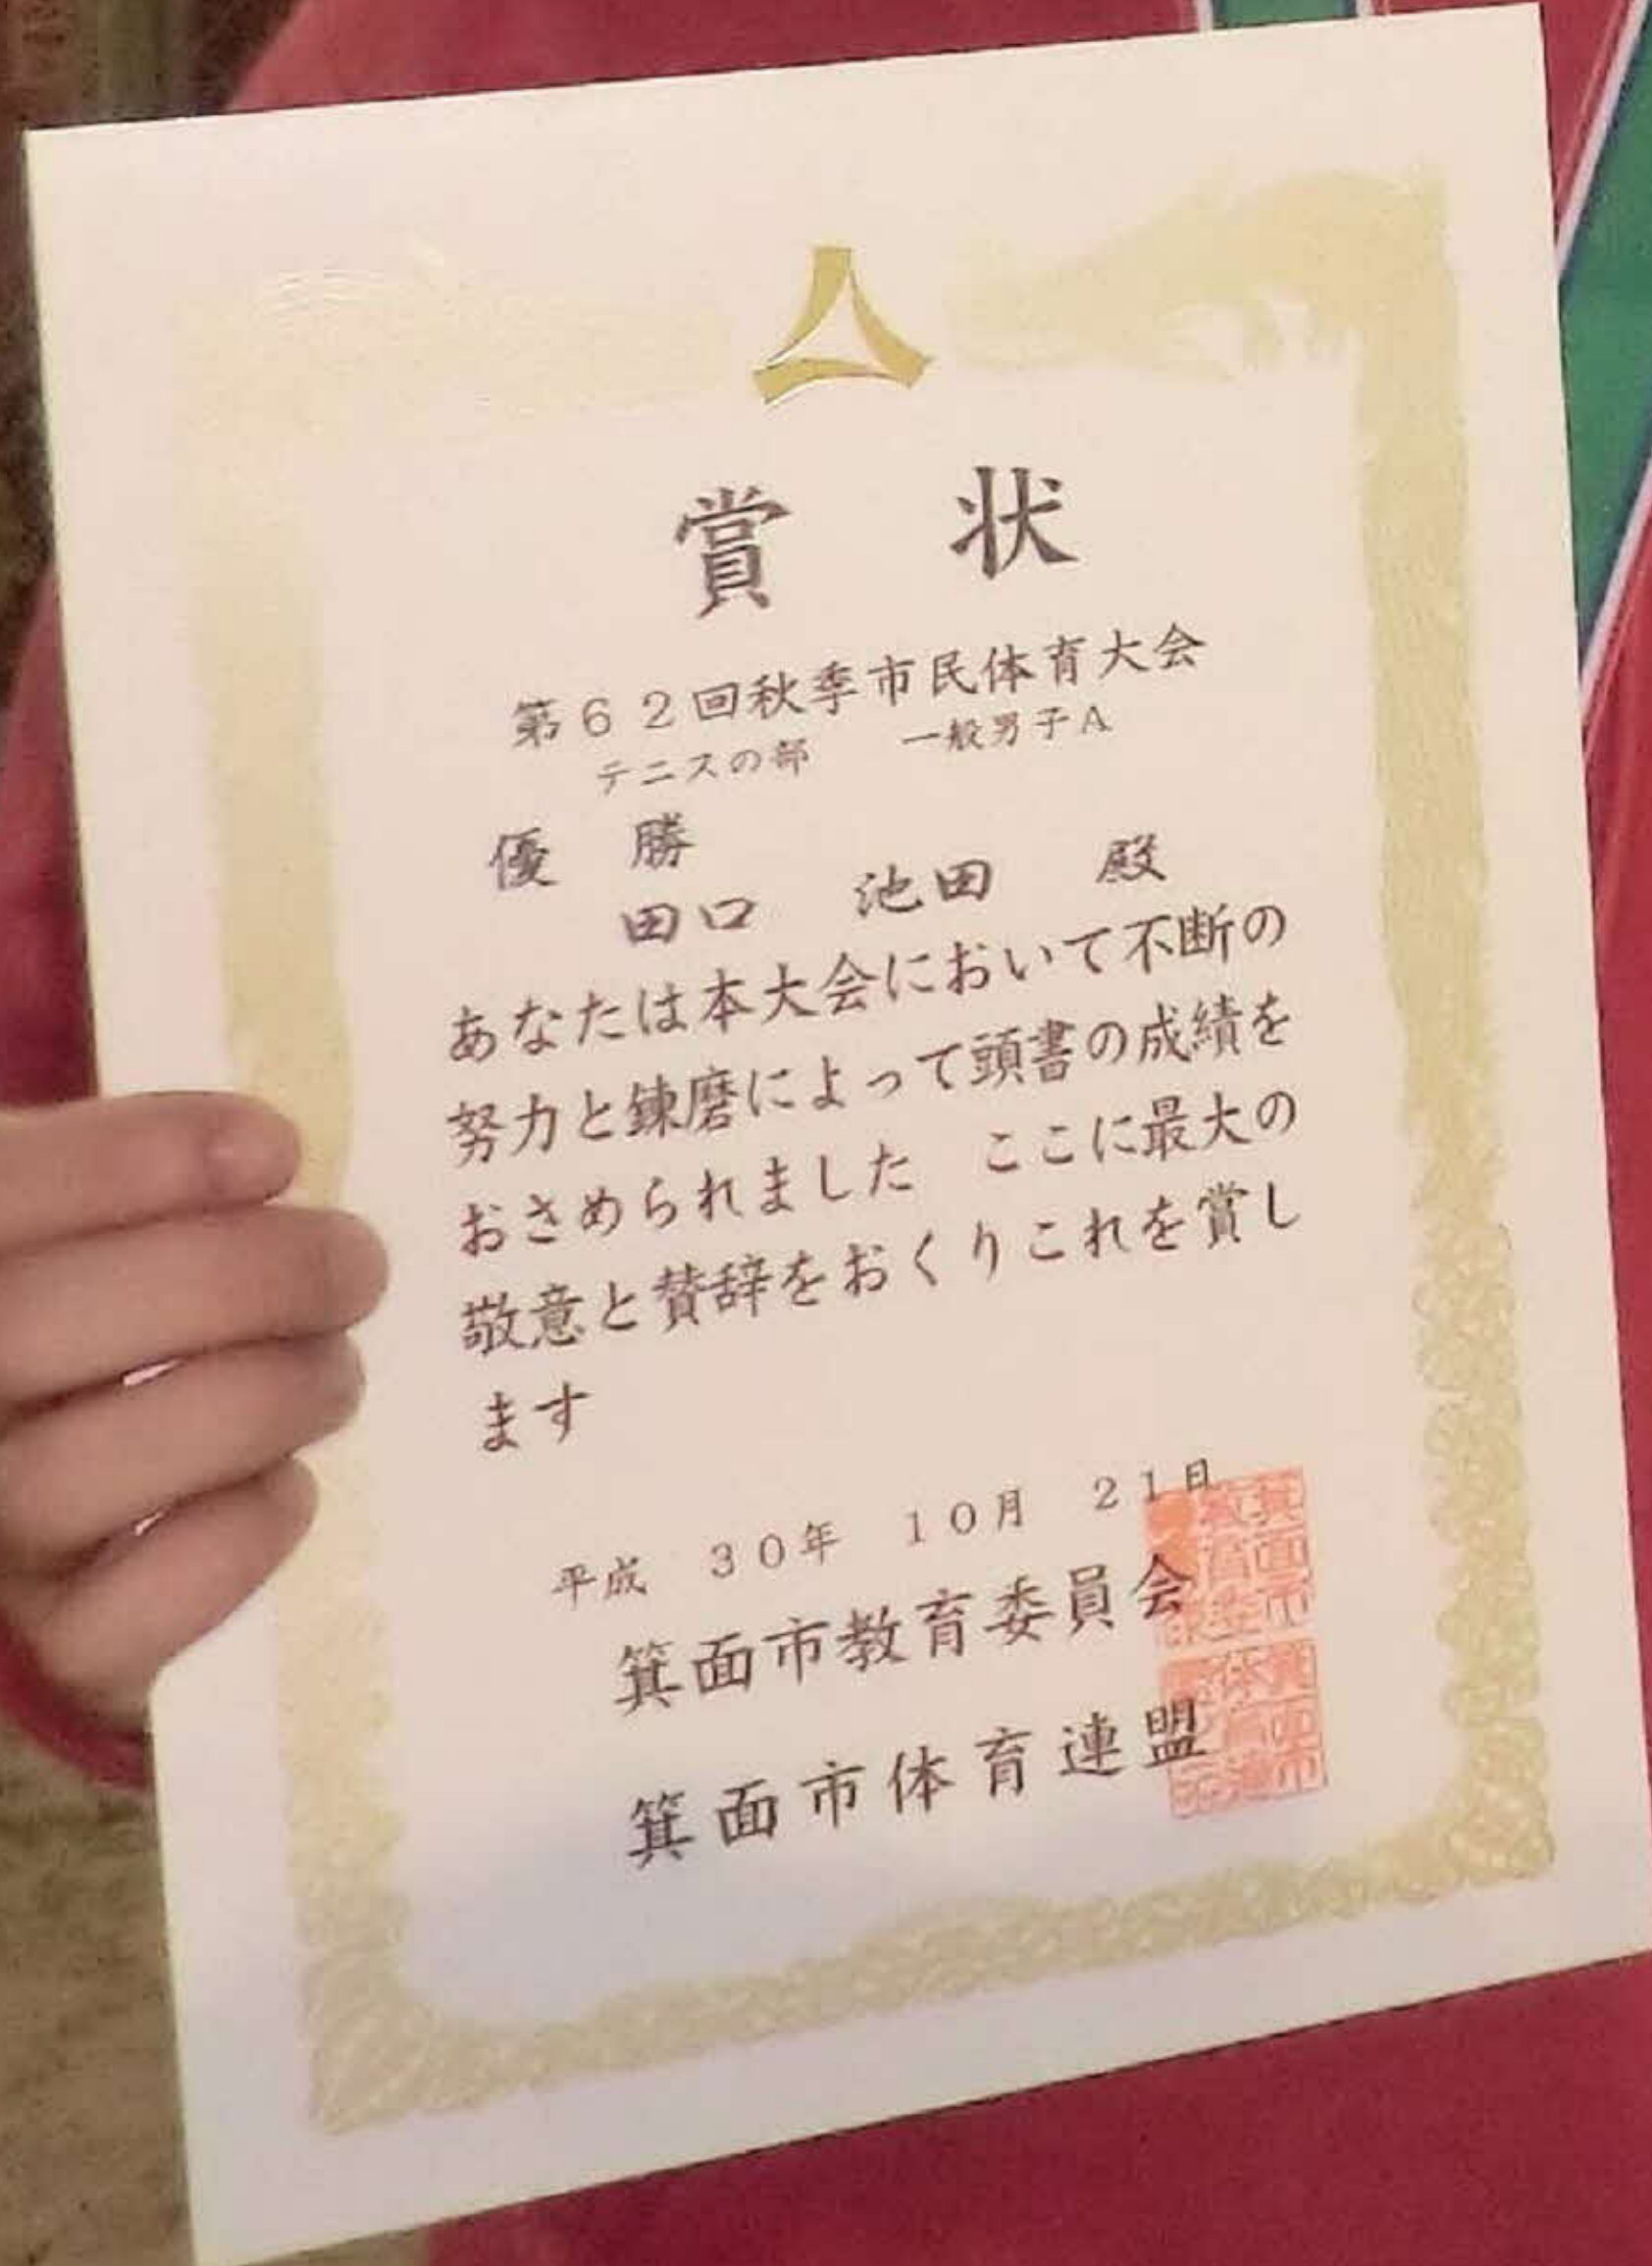 賞　状
第６２回秋季市民体育大会
テニスの部　一般男子A
優　勝
田口　池田　殿
あなたは本大会において不断の
努力と錬磨によって頭書の成績を
おさめられました　ここに最大の
敬意と賛辞をおくりこれを賞し
ます
平成　３０年　１０月　２１日
箕面市教育委員会
箕面市体育連盟